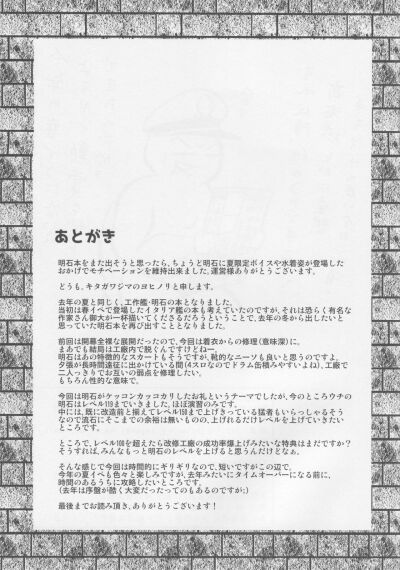 あとがき
明石本をまた出そうと思ったら、ちょうど明石に夏限定ボイスや水着姿が登場した
おかげでモチベーションを維持出来ました。運営様ありがとうございます。
どうも、キタガワジマのヨヒノリと申します。
去年の夏と同じく、工作艦・明石の本となりました。
当初は春イベで登場したイタリア艦の本も考えていたのですが、それは恐らく有名な
作家さん御大が一杯描いてくださるだろうということで、去年の冬から出したいと
思っていた明石本を再び出すこととなりました。
前回は開幕全裸な展開だったので、今回は着衣からの修理(意味深)に。
まあでも結局は工廠内で脱ぐんですけどねー。
明石はあの特徴的なスカートもそうですが、靴的なニーソも良いと思うのですよ。
夕張が長時間遠征に出されている間(4スロなのでドラム缶積みやすいよね)、工廠で
二人っきりでお互いの弱点を修理したい。
もちろん性的な意味で。
今回は明石がケッコンカッコカリしたお礼というテーマでしたが、今のところウチの
明石はレベル119までいきました。ほぼ演習のみです。
中には、既に改造前と揃えてレベル150まで上げきっている猛者もいらっしゃるそう
なので流石にそこまでの余裕は無いものの、上げれるだけレベルを上げていきたい
ところです。
ところで、レベル100を超えたら改修工廠の成功率爆上げみたいな特典はまだですか?
そうすれば、みんなもっと明石のレベルを上げると思うんだけどなぁ。
そんな感じで今回は時間的にギリギリなので、短いですがこの辺で。
今年の夏イベも色々と楽しみですが、去年みたいにタイムオーバーになる前に、
時間のあるうちに攻略したいところです。
(去年は序盤が酷く大変だったってのもあるのですが;)
最後までお読み頂き、ありがとうございます!